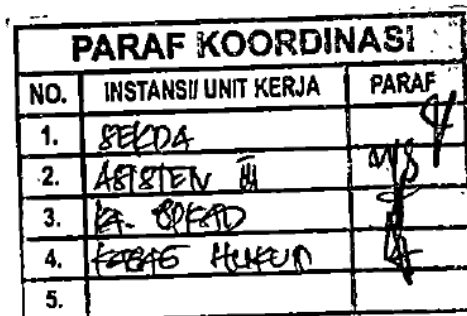 PARAF KOORDINASI
NO. INSTANSI/ UNIT KERJA PARAF
1. SEKDA
2. ASISTEN III
3. KA. BPKAD
4. KABAG HUKUM
5.